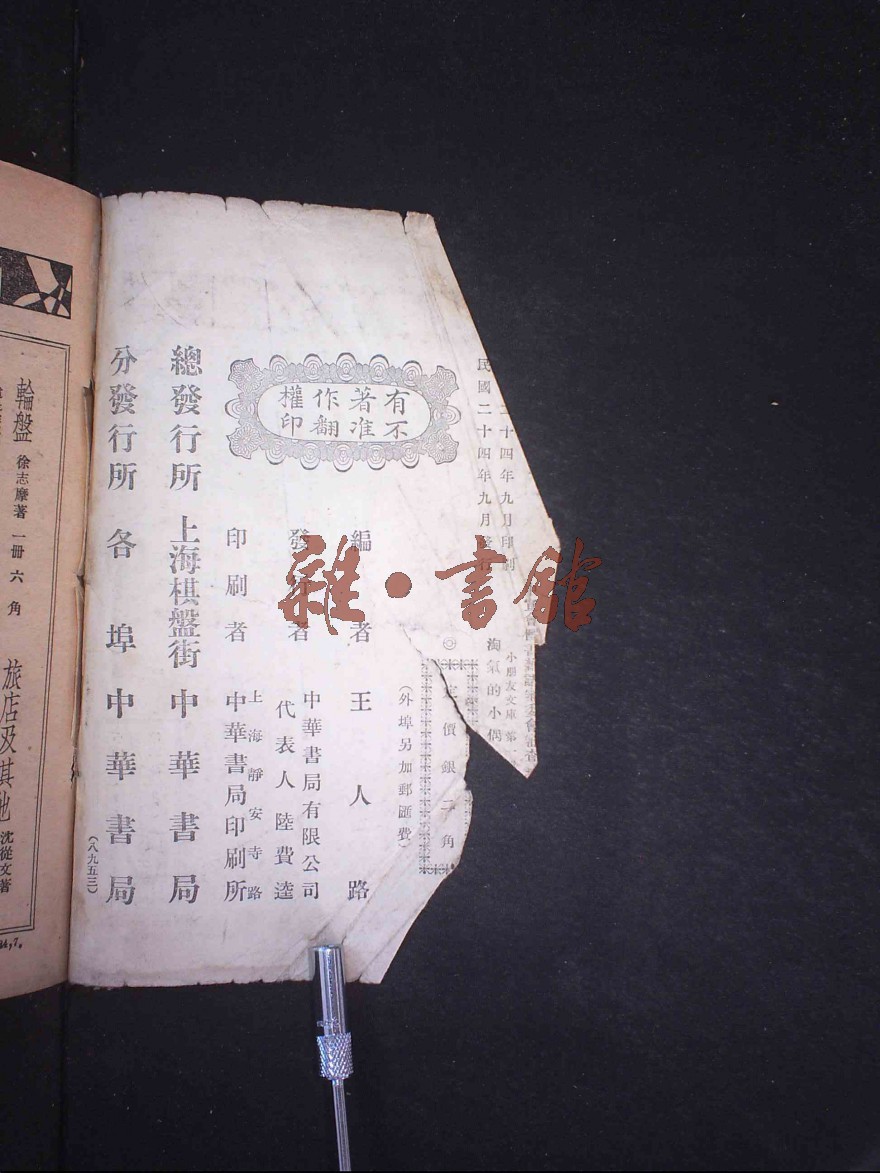 二十四年九月印刷
民國二十四年九月發行
小朋友文庫 第
淘氣的小偶
定價銀二角
(外埠另加郵匯費)
有著作權
不准翻印
編者 王人路
發行者 中華書局有限公司
代表人 陸費逵
印刷者 上海靜安寺路
中華書局印刷所
總發行所 上海棋盤街 中華書局
分發行所 各埠 中華書局
(八九五三)
雜·書館
輪盤 徐志摩著 一冊 六角
旅店及其他 沈從文著